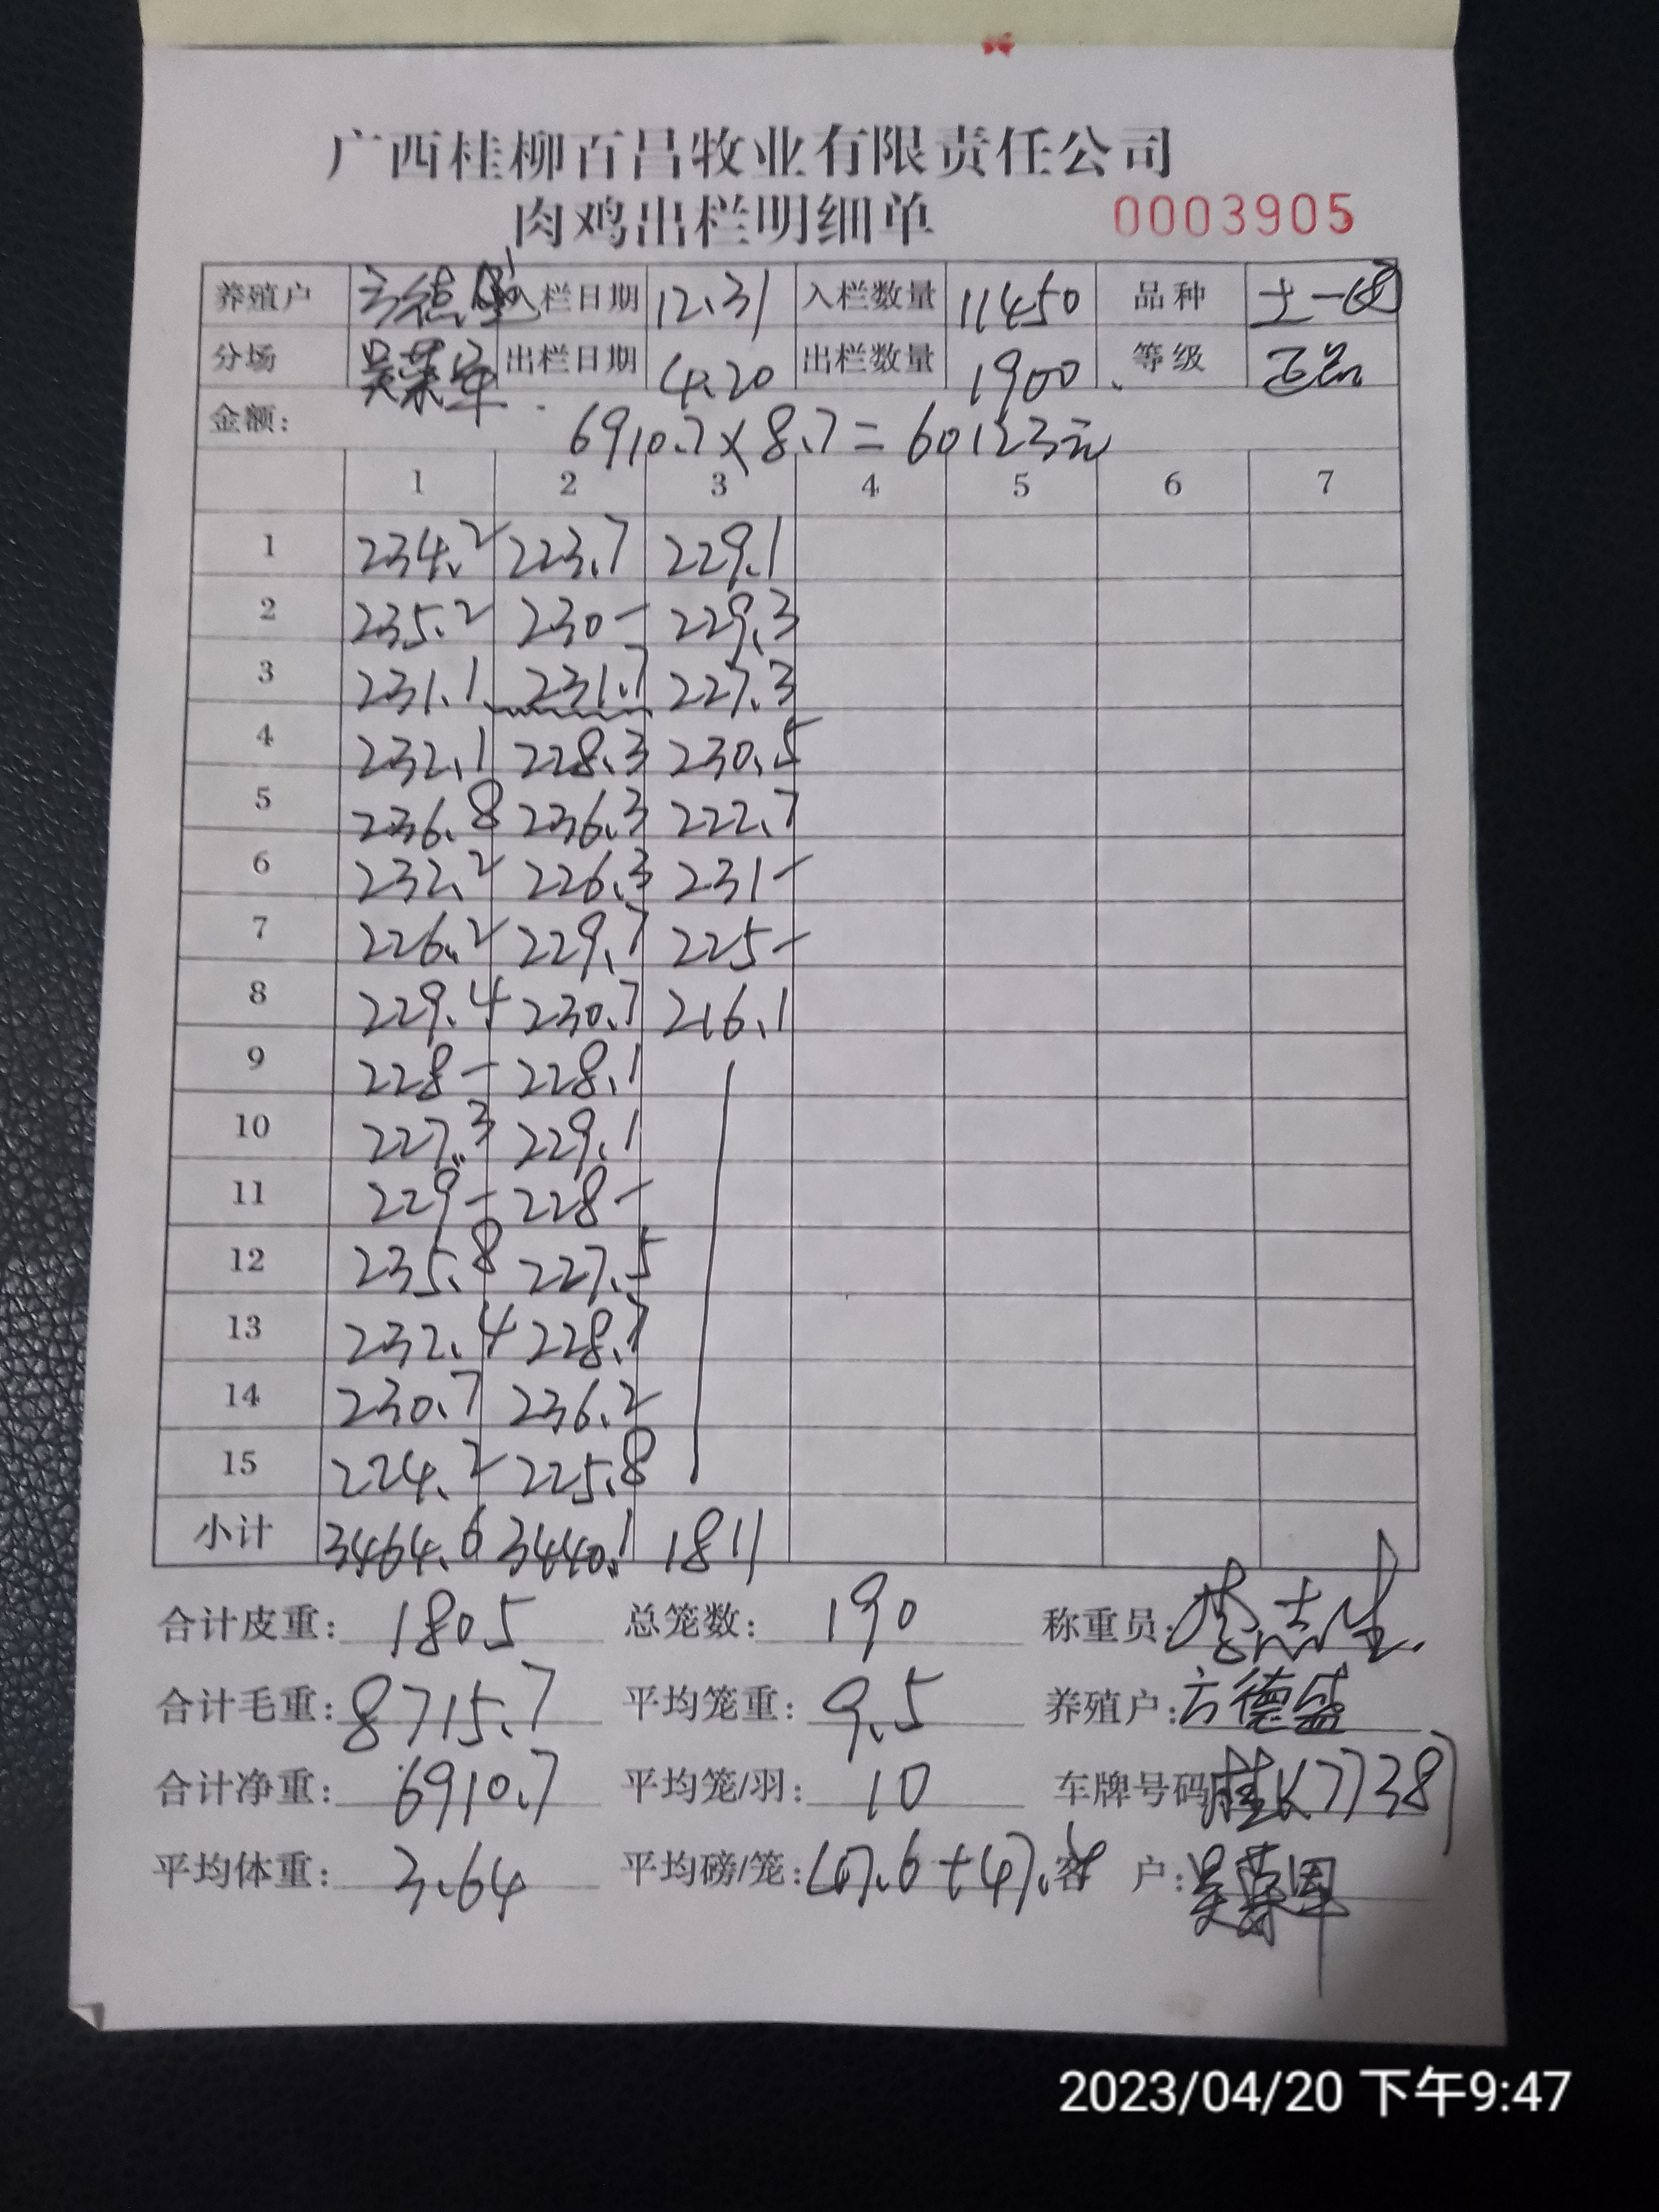 广西桂柳百昌牧业有限责任公司
肉鸡出栏明细单 0003905
养殖户 方德盛 入栏日期 12.31 入栏数量 11450 品种 土一
分场 吴荣军 出栏日期 4.20 出栏数量 1900 等级 正品
金额: 6910.7×8.7=60123元
1 2 3 4 5 6 7
1 234.2 223.7 229.1
2 235.2 230- 229.3
3 231.1 231.7 227.3
4 232.1 228.3 230.5
5 236.8 236.3 222.7
6 232.2 226.3 231-
7 226.2 229.7 225-
8 229.4 230.7 216.1
9 228- 228.1
10 227.3 229.1
11 229- 228-
12 235.8 227.5
13 232.4 228.7
14 230.7 236.2
15 224.2 225.8
小计 3464.6 3440.1 1811
合计皮重: 1805 总笼数: 190 称重员:
合计毛重: 8715.7 平均笼重: 9.5 养殖户: 方德盛
合计净重: 6910.7 平均笼/羽: 10 车牌号码 桂K77387
平均体重: 3.64 平均磅/笼: 47.6+47. 客 户: 吴荣军
2023/04/20 下午9:47